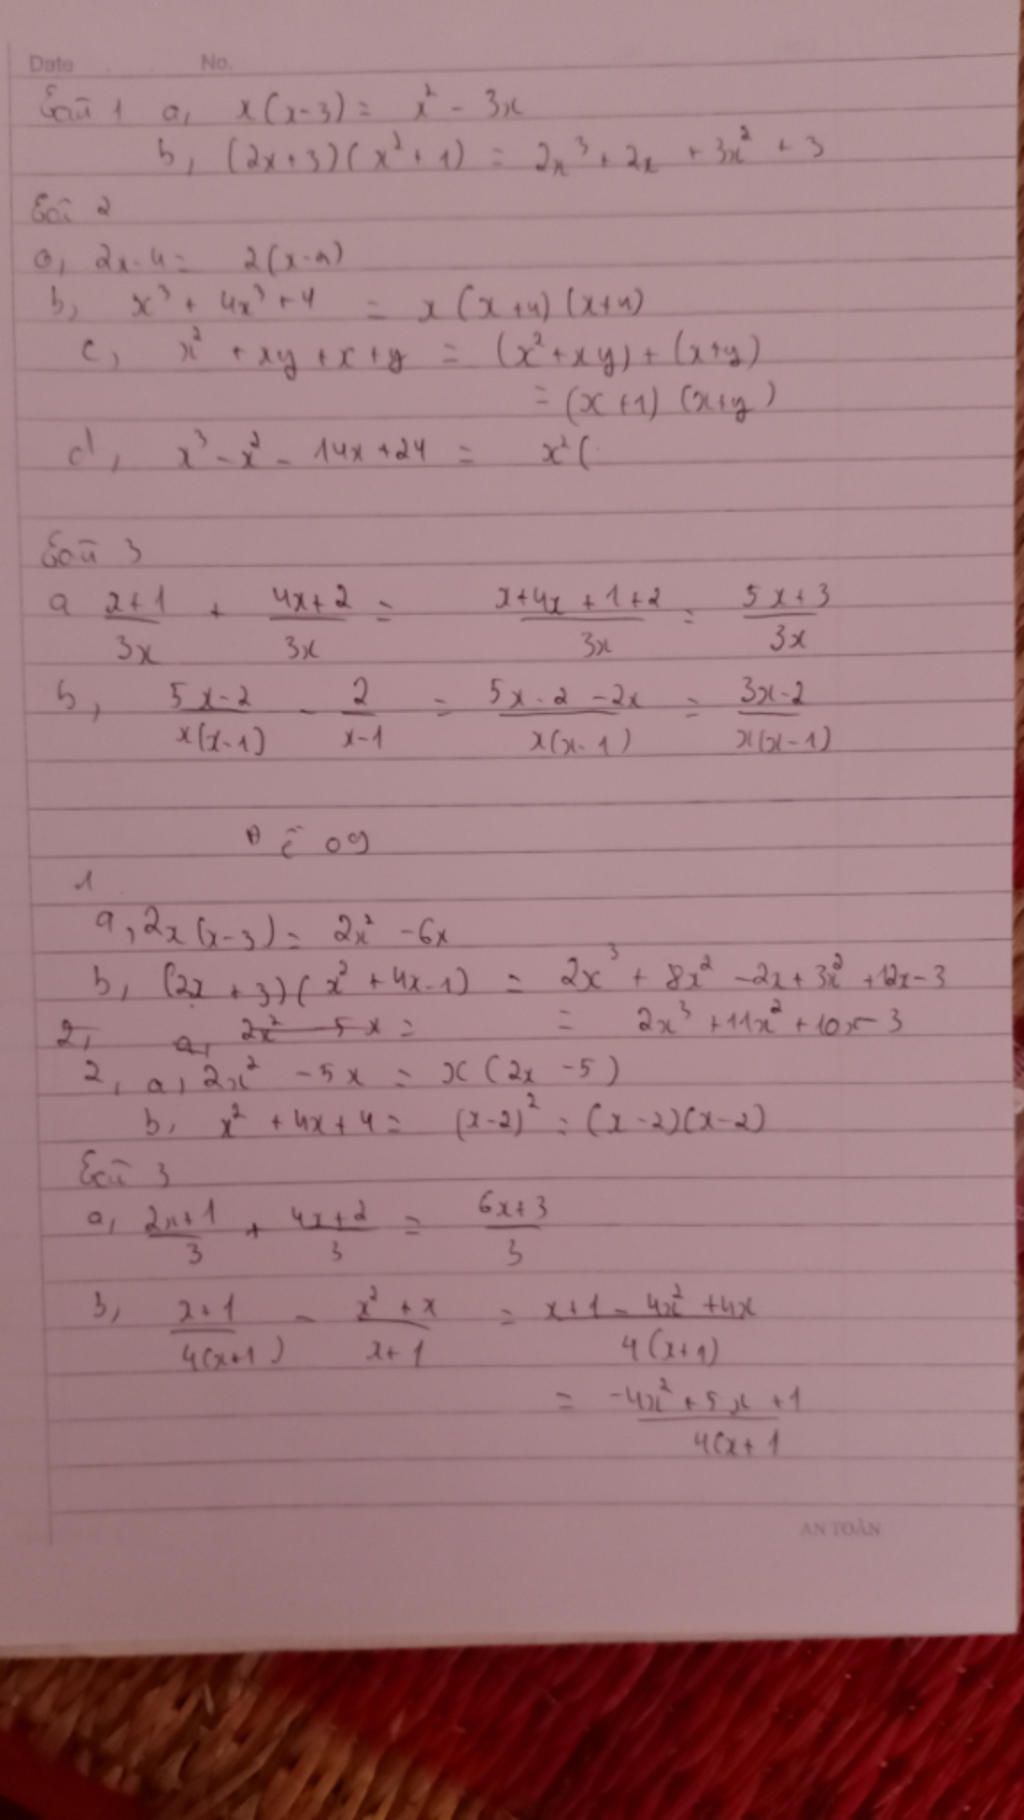 Date No.
Câu 1 a, x(x-3) = x² - 3x
b, (2x+3)(x²+1) = 2x³ + 2x + 3x² + 3
Câu 2
a, 2x-4 = 2(x-2)
b, x³ + 4x³ + 4 = x(x+4)(x+4)
c, x² + xy + x + y = (x² + xy) + (x+y)
= (x+1)(x+y)
d, x³ - x² - 14x + 24 = x²(
Câu 3
a (x+1)/3x + (4x+2)/3x = (x+4x+1+2)/3x = (5x+3)/3x
b, (5x-2)/x(x-1) - 2/(x-1) = (5x-2-2x)/x(x-1) = (3x-2)/x(x-1)
Đề 09
1
a, 2x(x-3) = 2x² - 6x
b, (2x+3)(x² + 4x-1) = 2x³ + 8x² - 2x + 3x² + 12x - 3
2, a, 2x² - 5x = = 2x³ + 11x² + 10x - 3
2, a, 2x² - 5x = x(2x - 5)
b, x² + 4x + 4 = (x-2)² = (x-2)(x-2)
Câu 3
a, (2x+1)/3 + (4x+2)/3 = (6x+3)/3
b, (x+1)/4(x+1) - (x² + x)/(x+1) = (x+1 - 4x² + 4x)/4(x+1)
= (-4x² + 5x + 1)/4(x+1
AN TOÀN